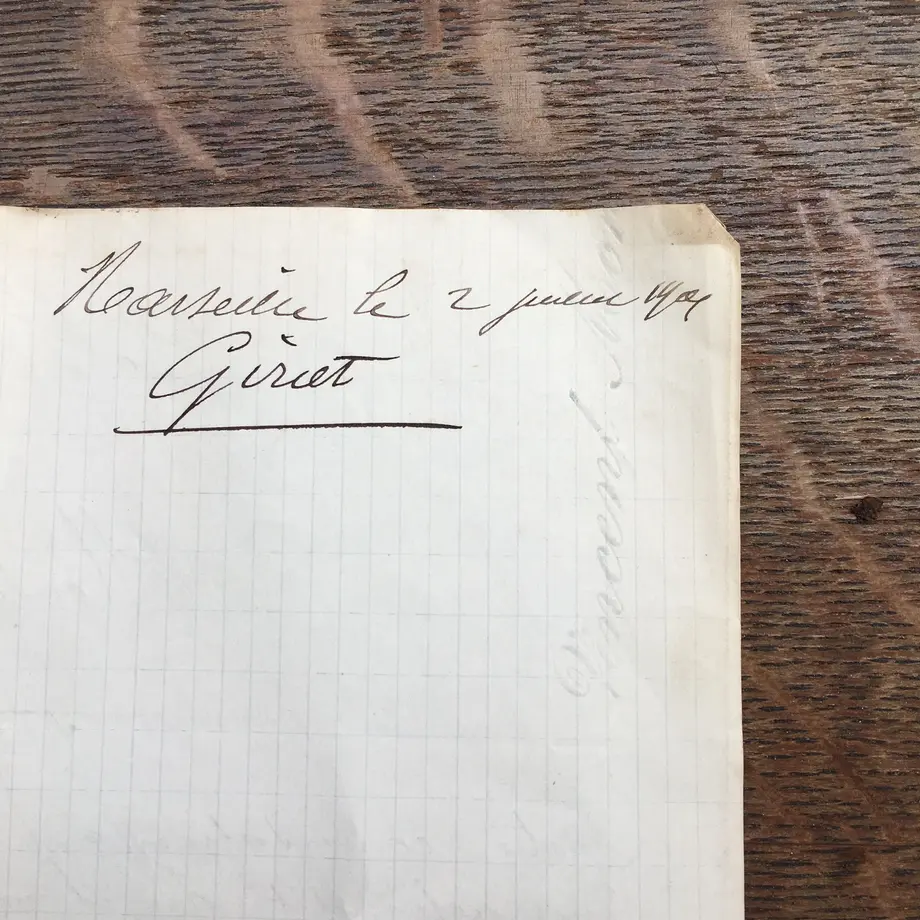 Marseille le 2 juillet
Giriet
Vincent